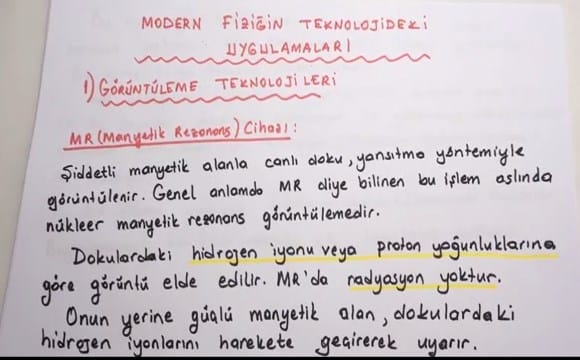 MODERN FİZİĞİN TEKNOLOJİDEKİ
UYGULAMALARI
1) GÖRÜNTÜLEME TEKNOLOJİLERİ
MR (Manyetik Rezonans) Cihazı:
Şiddetli manyetik alanla canlı doku, yansıtma yöntemiyle
görüntülenir. Genel anlamda MR diye bilinen bu işlem aslında
nükleer manyetik rezonans görüntülemedir.
Dokulardaki hidrojen iyonu veya proton yoğunluklarına
göre görüntü elde edilir. MR'da radyasyon yoktur.
Onun yerine güçlü manyetik alan, dokulardaki
hidrojen iyonlarını harekete geçirerek uyarır.